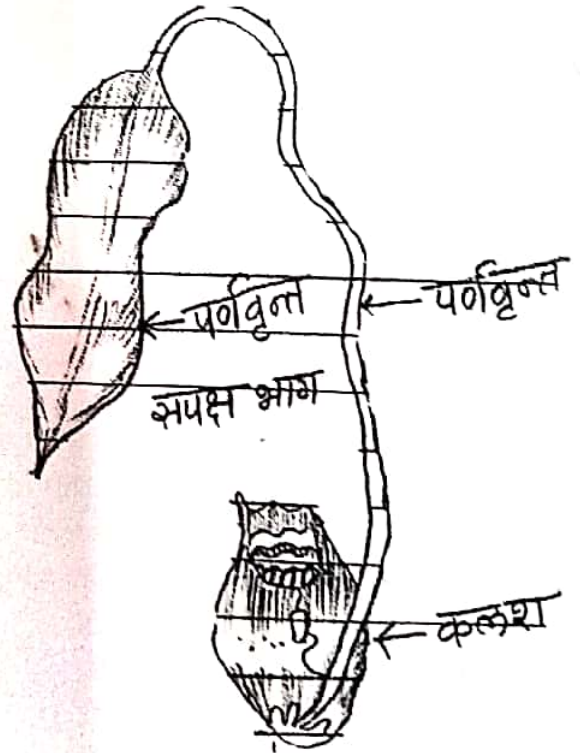 पर्णवृन्त
पर्णवृन्त
सपक्ष भाग
कलश